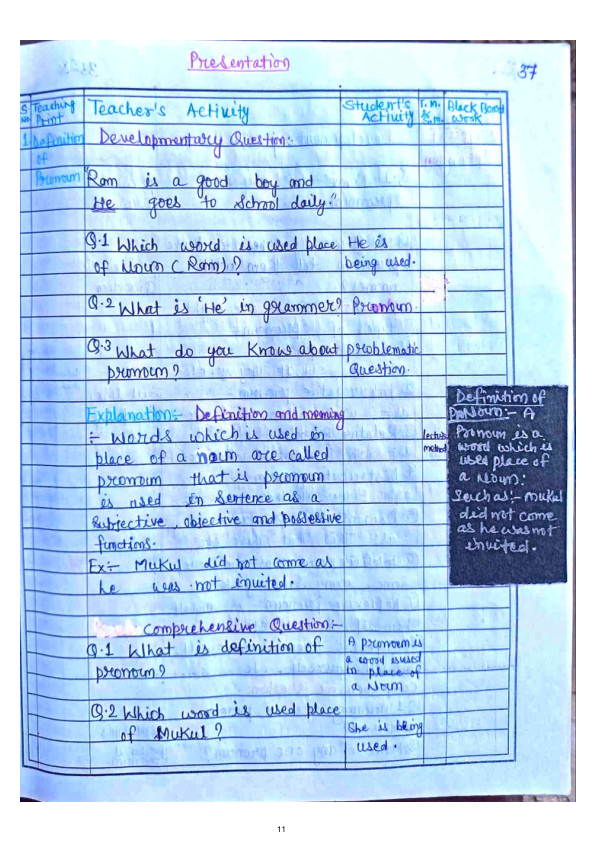 Presentation
37
S. No
Teaching Point
Teacher's Activity
Student's Activity
T.m. & S.m.
Black Board Work
1.
Definition of Pronoun
Developmentary Question:-
"Ram is a good boy and
He goes to School daily."
Q.1 Which word is used place
of Noun (Ram)?
He is
being used.
Q.2 What is 'He' in grammer?
Pronoun.
Q.3 What do you Know about
pronoun?
problematic
Question.
Explanation:- Definition and meaning
:- Words which is used in
place of a noun are called
pronoun that is pronoun
is used in Sentence as a
Subjective, objective and possessive
functions.
Ex:- Mukul did not come as
he was not invited.
lecture
method
Definition of
Pronoun:- A
Pronoun is a
word which is
used place of
a Noun.
Such as:- Mukul
did not come
as he was not
invited.
Comprehensive Question:-
Q.1 What is definition of
pronoun?
A pronoun is
a word is used
in place of
a Noun
Q.2 Which word is used place
of Mukul?
She is being
used.
11